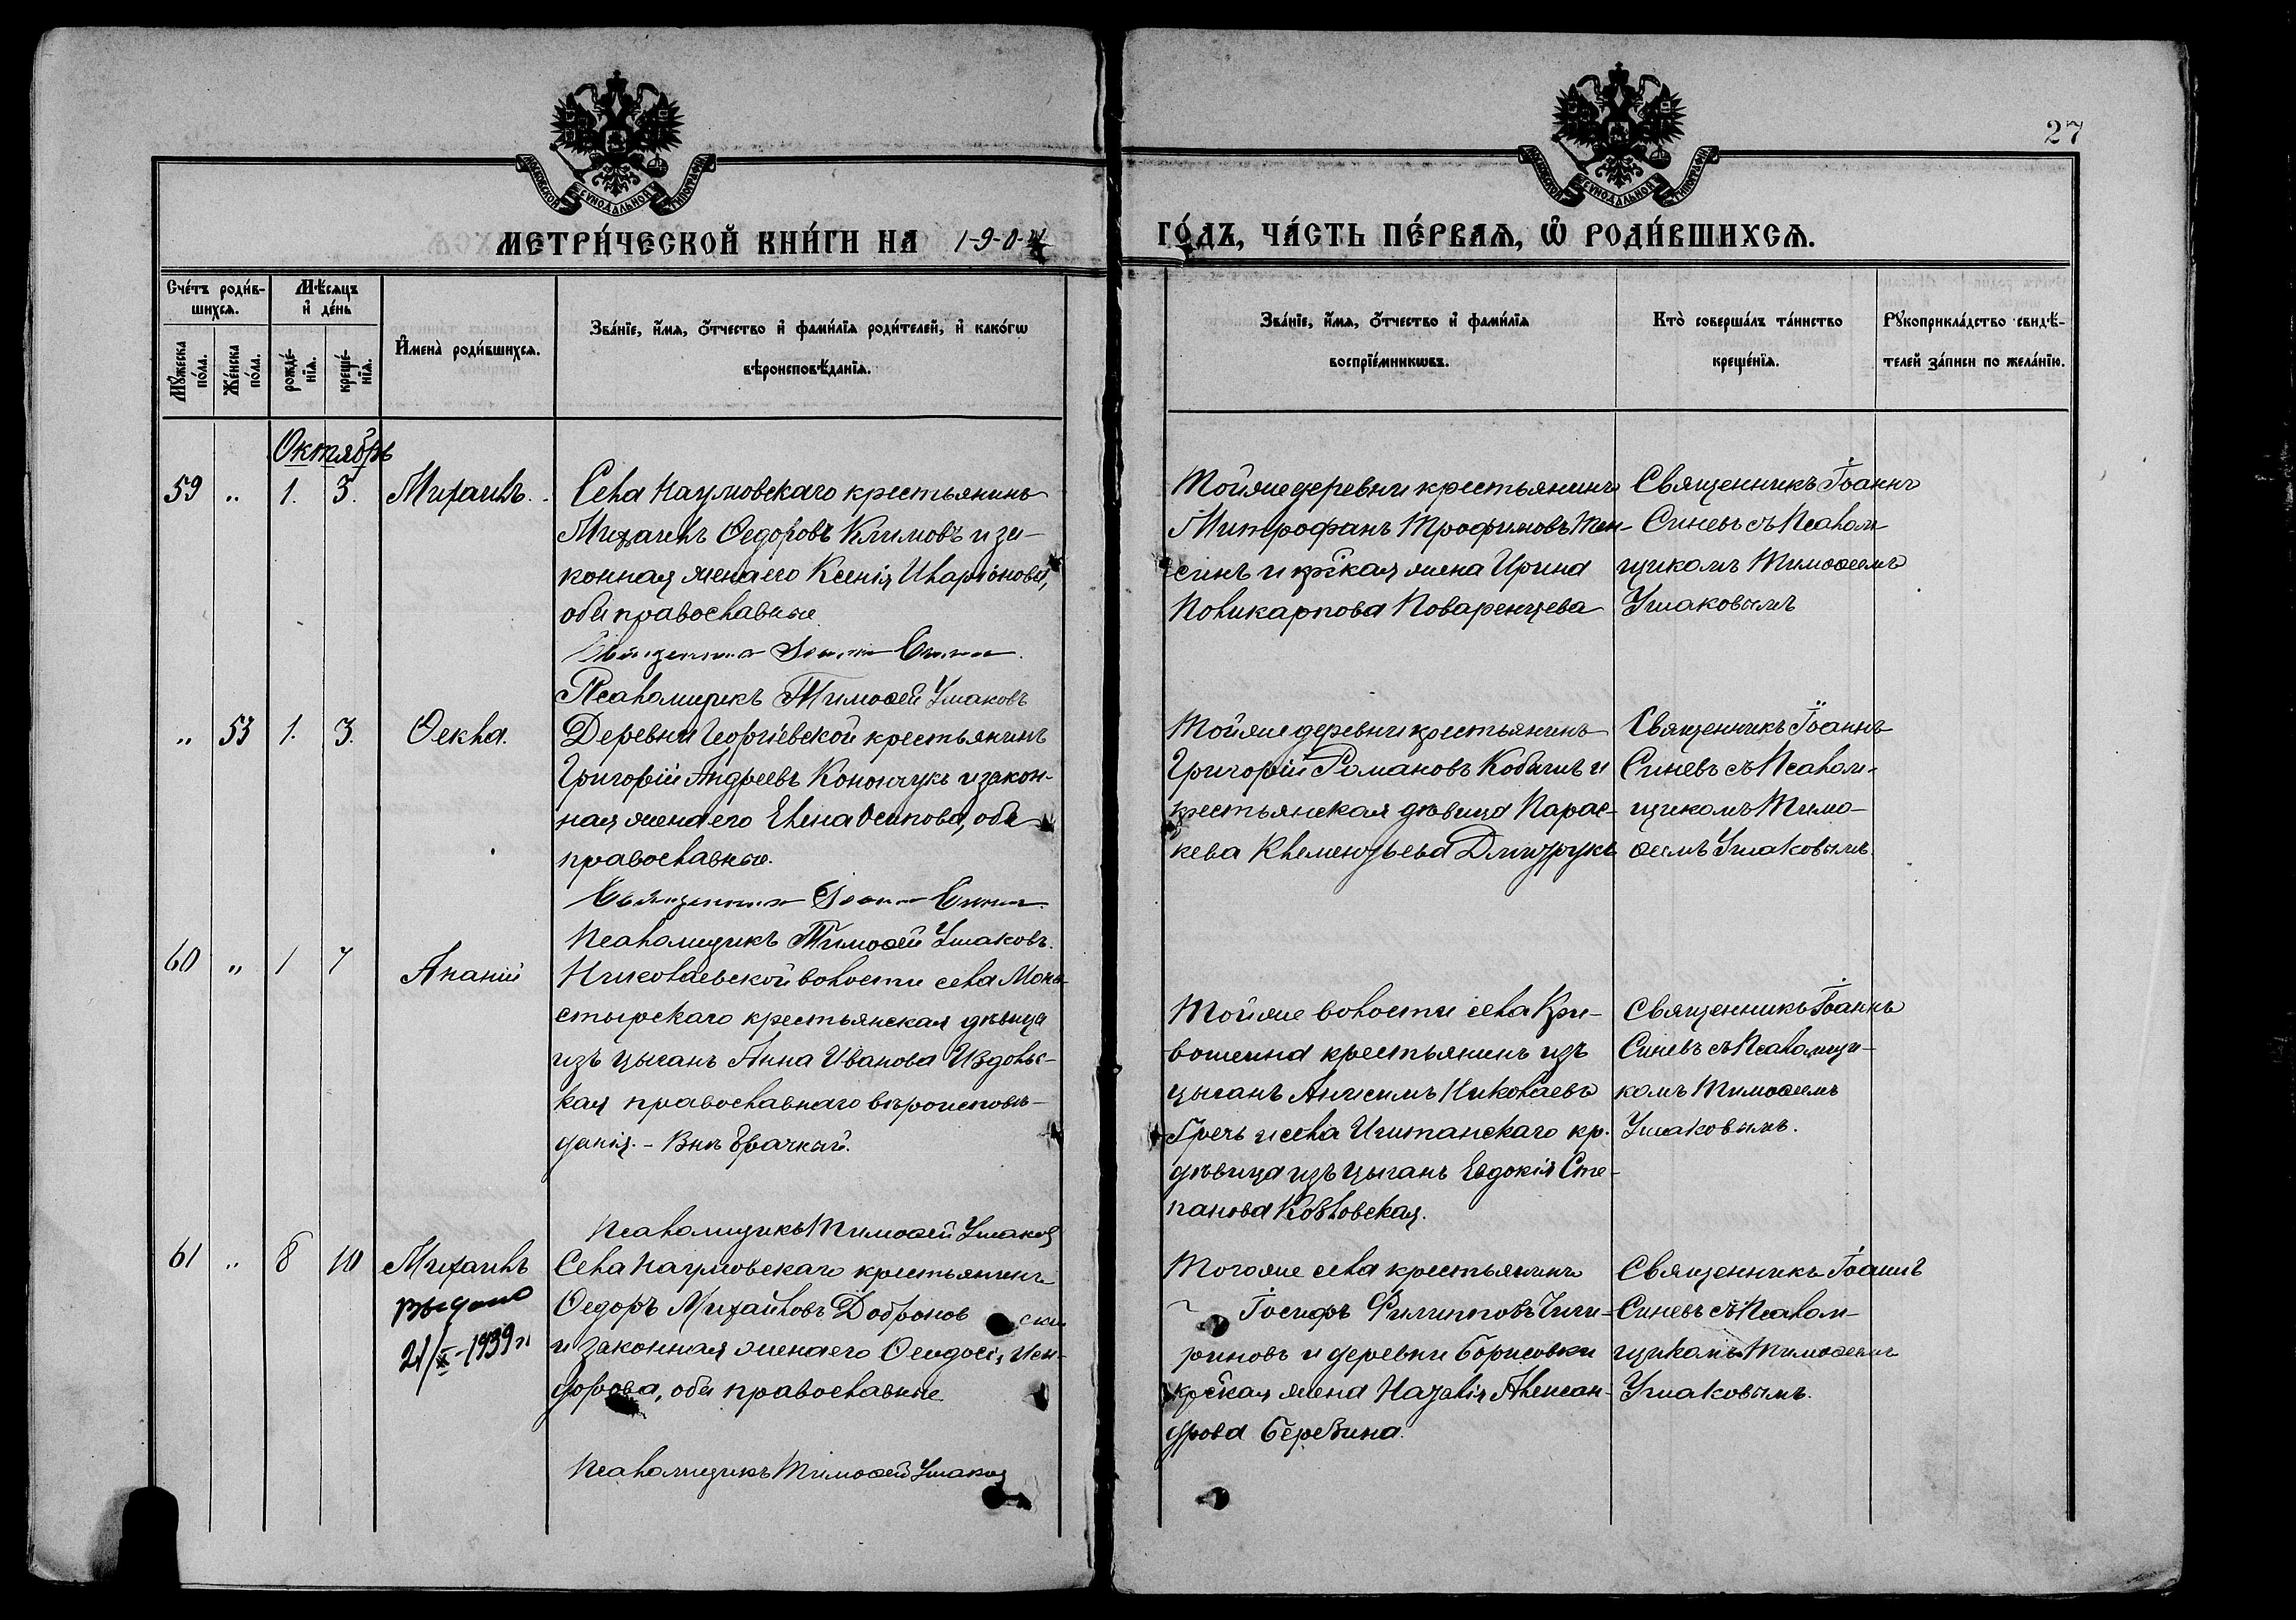 27
МОСКОВСКОЙ СѴНОДАЛЬНОЙ ТИПОГРАФІИ
МОСКОВСКОЙ СѴНОДАЛЬНОЙ ТИПОГРАФІИ
МЕТРИ́ЧЕСКОЙ КНИ́ГИ НА 1904
ГО́ДЪ, ЧА́СТЬ ПЕ́РВАЯ, Ѡ҆ РОДИ́ВШИХСЯ.
Сче́тъ роди́в-
шихся.
Мѣ́сяцъ
и҆ де́нь
Мꙋ́жеска по́ла.
Же́нска по́ла.
рожде́-
нїя.
креще́-
нїя.
И҆мена̀ роди́вшихся.
Зва́нїе, и҆́мя, ѻ҆́тчество и҆ фами́лїя роди́телей, и҆ како́гѡ
вѣроисповѣ́данїя.
Зва́нїе, и҆́мя, ѻ҆́тчество и҆ фами́лїя
воспрїе́мникѡвъ.
Кто̀ соверша́лъ та́инство
креще́нїя.
Рꙋкоприкла́дство свидѣ́-
телей за́писи по жела́нїю.
Октябрь
59 „ 1. 3. Михаилъ.
Села Наумовскаго крестьянинъ
Михаилъ Ѳедоровъ Климовъ и за-
конная жена его Ксенія Иларіонова,
оба православные.
Священникъ Іоаннъ Синевъ
Псаломщикъ Тимоѳей Ушаковъ
Той же деревни крестьянинъ
Митрофанъ Трофимовъ
и кр҃ская жена Ирина
Поликарпова Поваренцева
Священникъ Іоаннъ
Синевъ съ Псалом-
щикомъ Тимоѳеемъ
Ушаковымъ
„ 53 1. 3. Ѳекла.
Деревни Георгіевской крестьянинъ
Григорій Андреевъ Конончукъ и закон-
ная жена его Елена Осипова, оба
православные.
Священникъ Іоаннъ Синевъ
Псаломщикъ Тимоѳей Ушаковъ.
Той же деревни крестьянинъ
Григорій Романовъ и
крестьянская дѣвица Парас-
кева Клементьева Дмитрукъ
Священникъ Іоаннъ
Синевъ съ Псалом-
щикомъ Тимо-
ѳеемъ Ушаковымъ.
60 „ 1 7 Ананій
Николаевской волости села Мона-
стырскаго крестьянская дѣвица
изъ цыганъ Анна Иванова
православнаго вѣроисповѣ-
данія. - Внѣ брачный.
Псаломщикъ Тимоѳей Ушаковъ
Той же волости села Кри-
вошеина крестьянинъ изъ
цыганъ Анисимъ Николаевъ
и села Иштанскаго кр.
дѣвица изъ цыганъ Евдокія Сте-
панова Козловская.
Священникъ Іоаннъ
Синевъ съ Псаломщи-
комъ Тимоѳеемъ
Ушаковымъ.
61 „ 8 10 Михаилъ
Выдано
21/X-1939 г.
Села Наумовскаго крестьянинъ
Ѳедоръ Михайловъ
и законная жена его Ѳеодосія Иси-
дорова, оба православные
Псаломщикъ Тимоѳей Ушаковъ
Того же села крестьянинъ
Іосифъ Филипповъ Чиги-
риновъ и деревни Борисовки
кр҃ская жена Наталія Алексан-
дрова Березина.
Священникъ Іоаннъ
Синевъ съ Псалом-
щикомъ Тимоѳеемъ
Ушаковымъ.